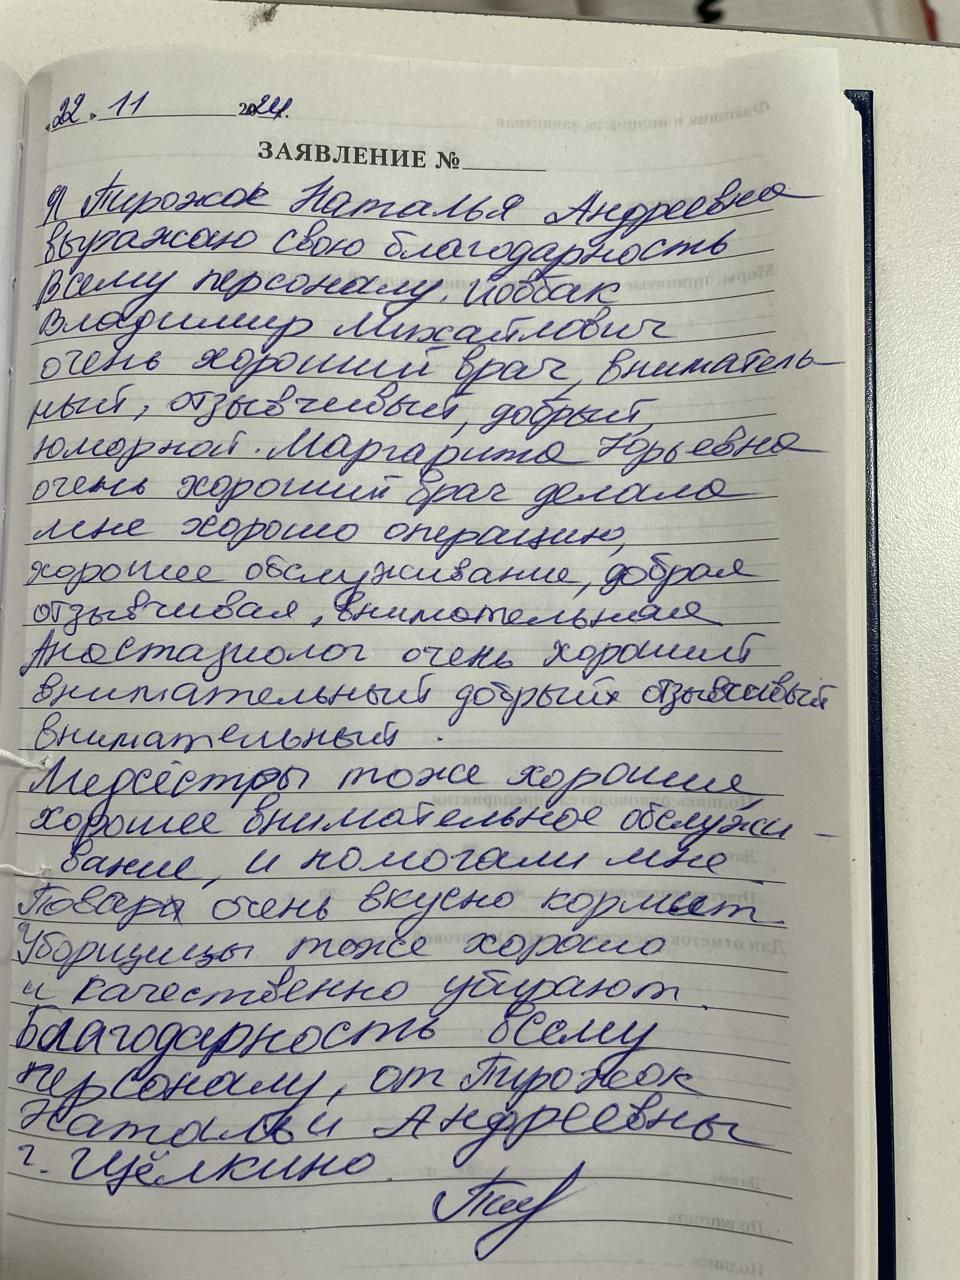 «22» 11 2024.
ЗАЯВЛЕНИЕ №
Я Пирожок Наталья Андреевна
выражаю свою благодарность
всему персоналу.
Владимир Михайлович
очень хороший врач, вниматель-
ный, отзывчивый, добрый,
юморной. Маргарита Юрьевна
очень хороший врач делала
мне хорошо операцию,
хорошее обслуживание, добрая
отзывчивая, внимательная
Анастазиолог очень хороший
внимательный добрый отзывчивый
внимательный.
Медсёстры тоже хорошие
хорошее внимательное обслужи-
вание, и помогали мне
Повара очень вкусно кормят
Уборщицы тоже хорошо
и качественно убирают.
Благодарность всему
персоналу, от Пирожок
Натальи Андреевны
г. Щёлкино.